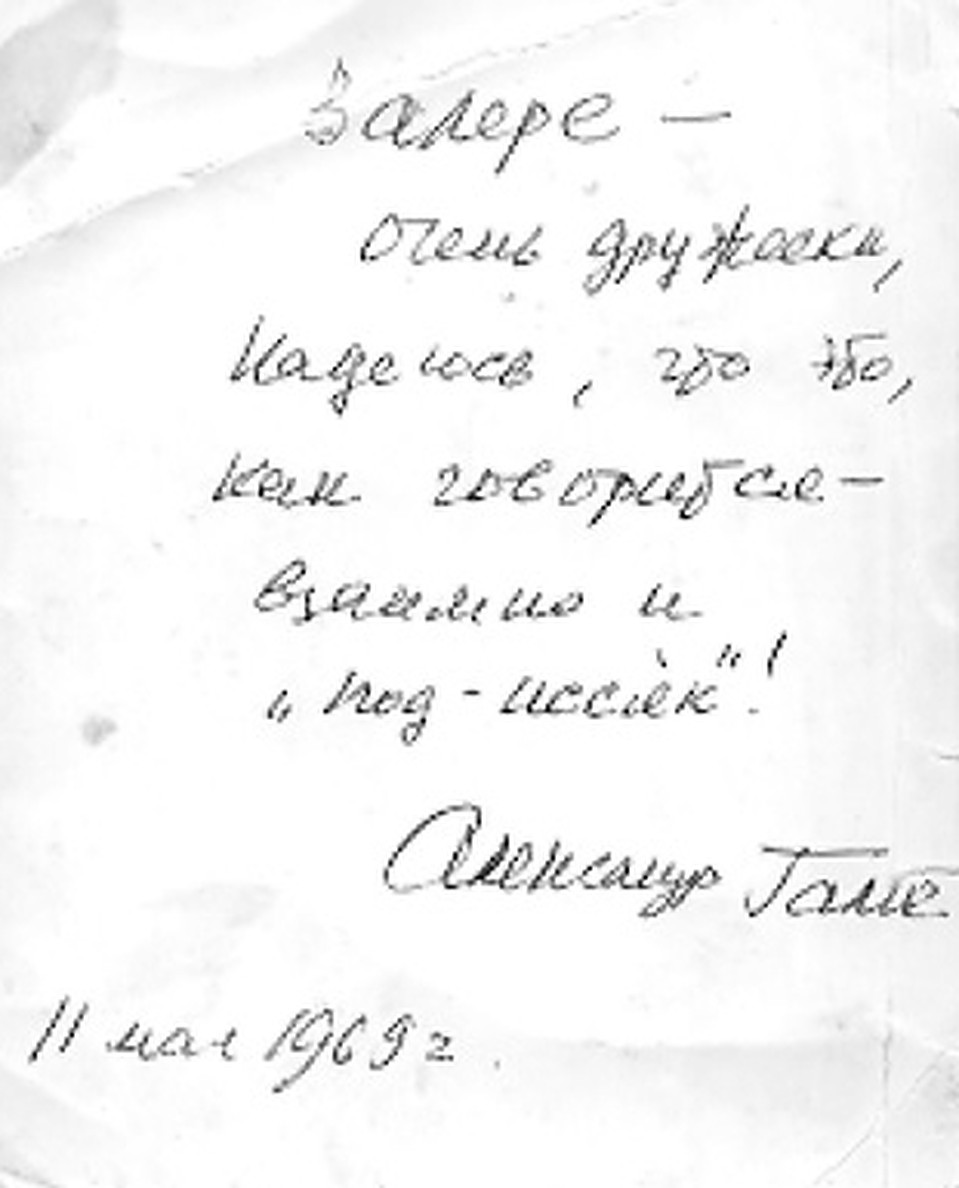 Валере —
очень дружески,
Надеюсь, что это,
как говорится —
взаимно и
„под-иссяк"!
Александр Галич
11 мая 1969 г.